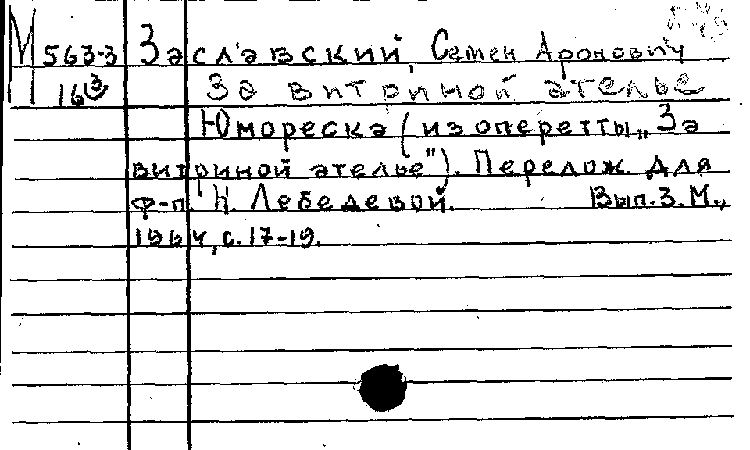 М 563-3 Заславский, Семен Аронович
16 3 За витриной ателье
Юмореска (из оперетты „За
витриной ателье"). Перелож. для
ф-п. Н. Лебедевой. Вып. 3. М.,
1964, с. 17-19.